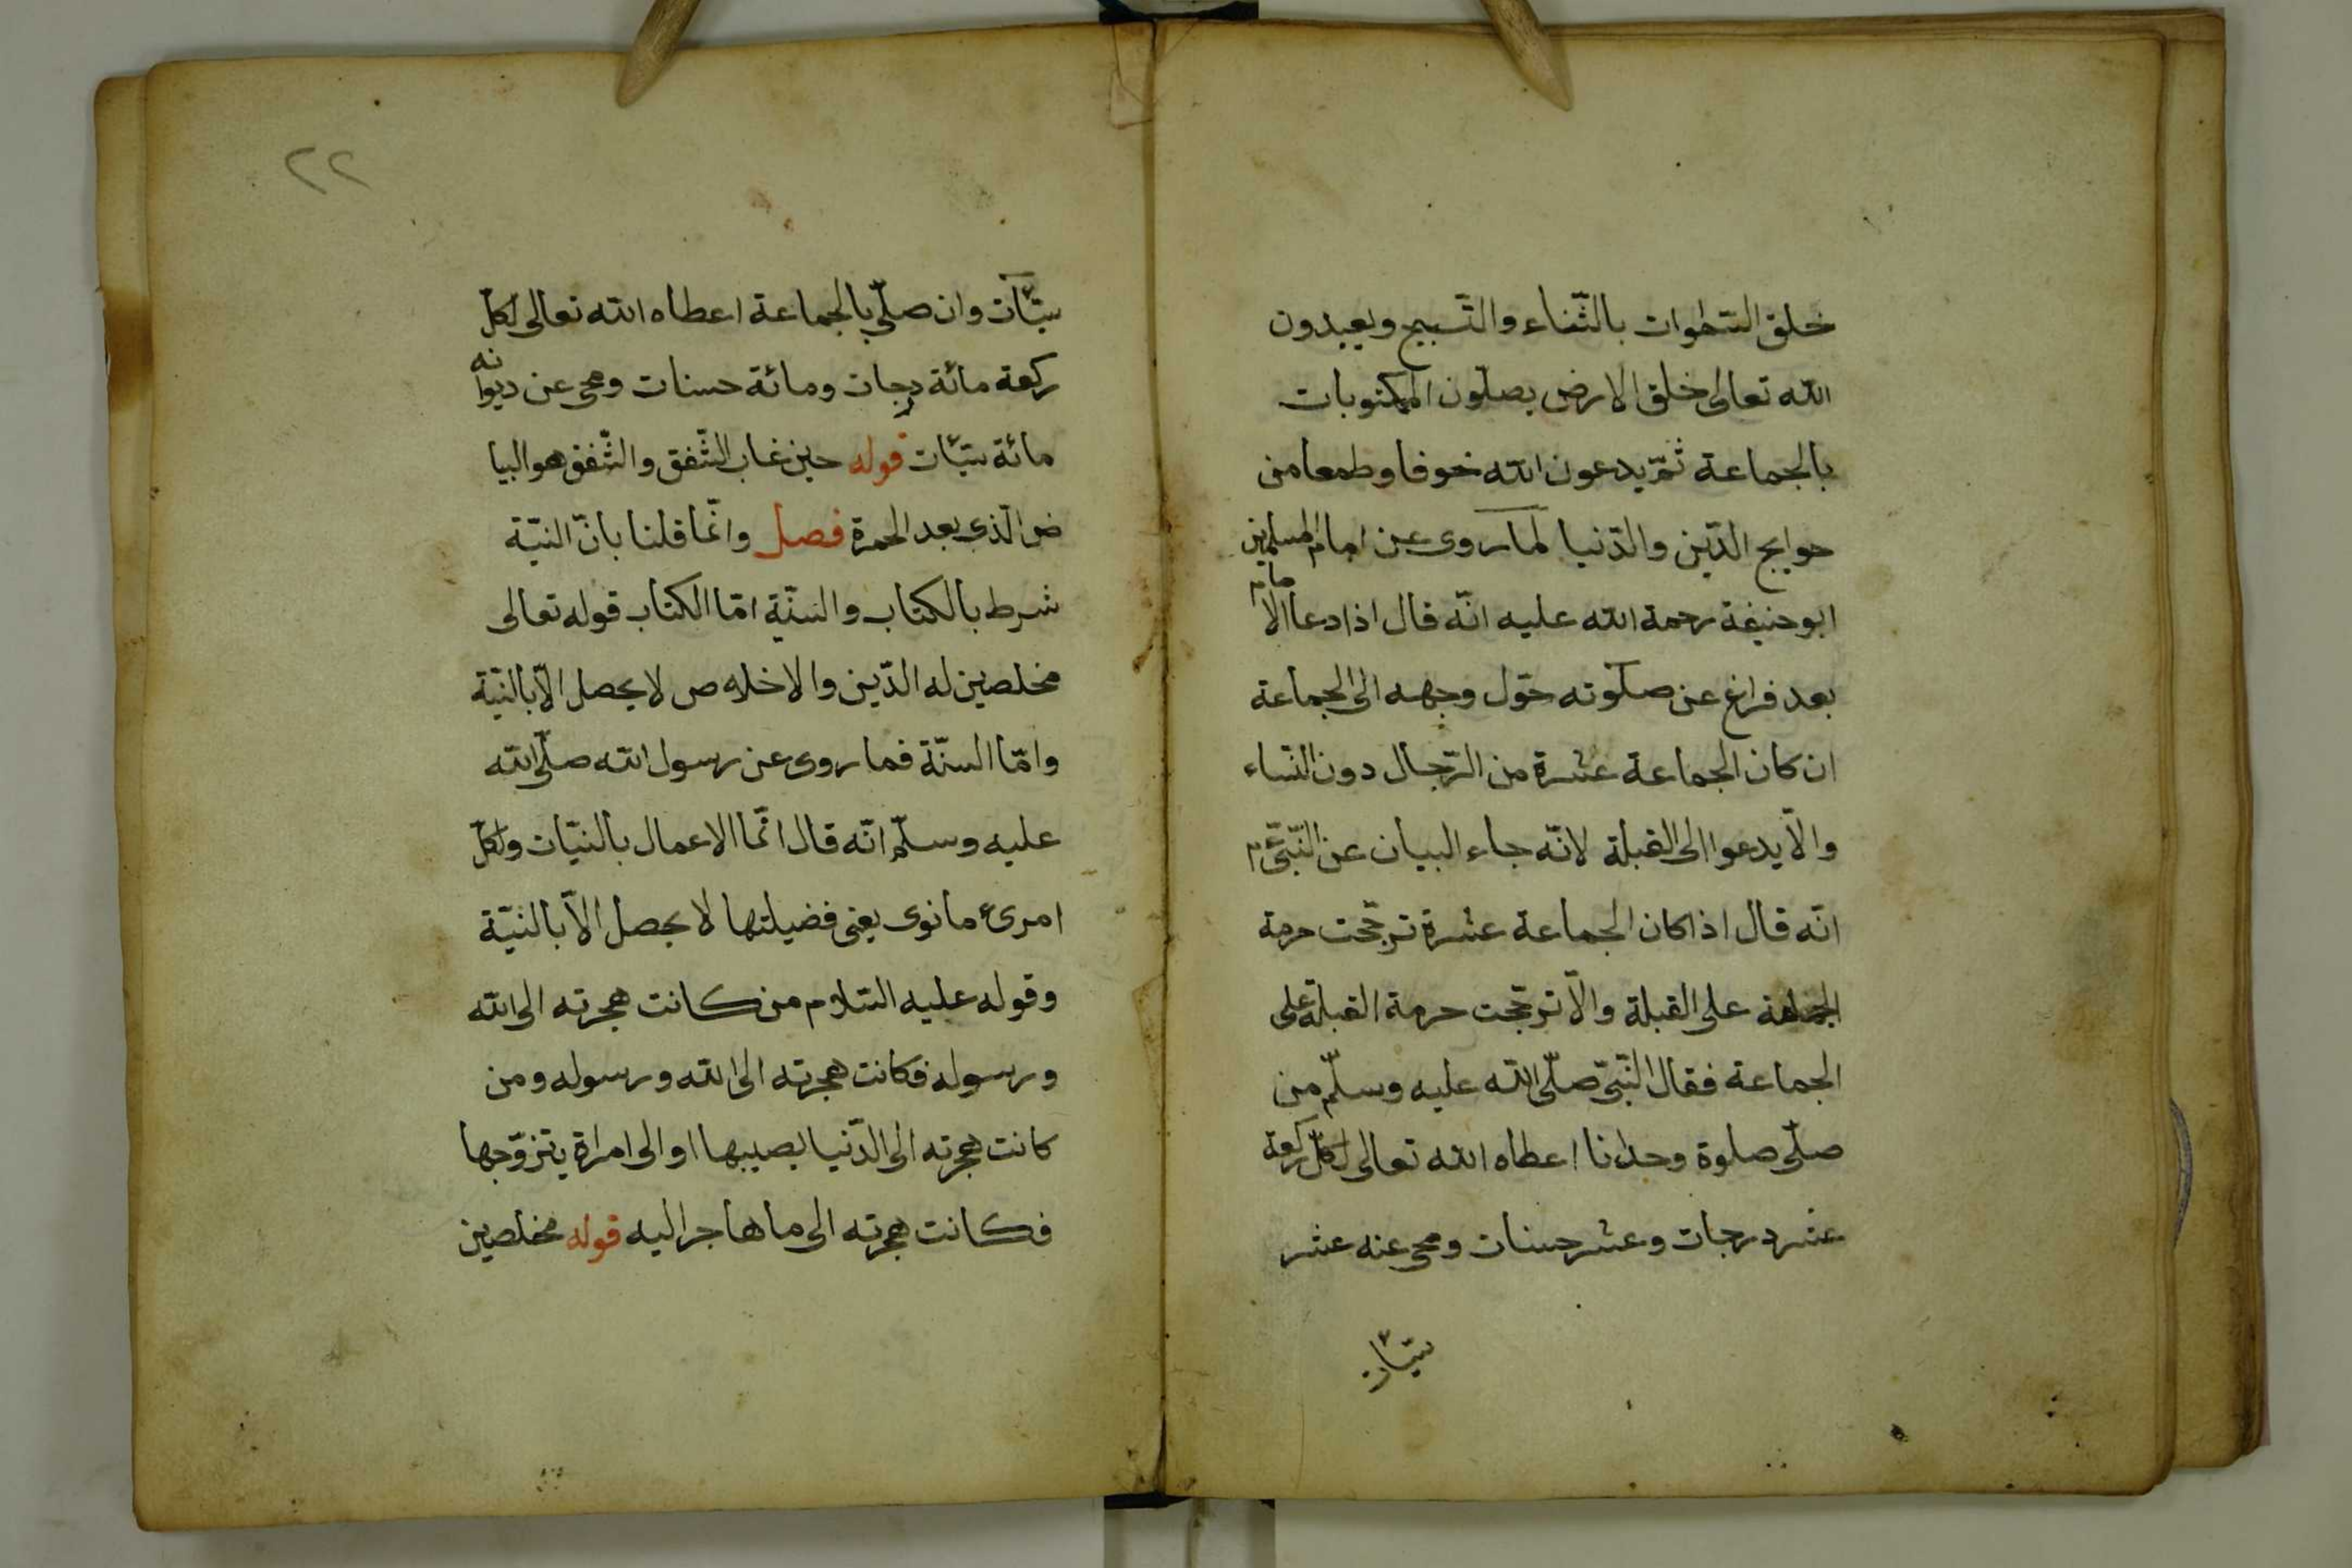 خلق السّموات بالثّناء والتّسبيح ويعبدون
الله تعالى خلق الارض يصلّون المكتوبات
بالجماعة ثمّ يدعون الله خوفا وطمعا من
حوايج الدّين والدّنيا لما روى عن امام المسلمين
ابو حنيفة رحمة الله عليه انّه قال اذا دعا الامام
بعد فراغ عن صلوته حوّل وجهه الى الجماعة
ان كان الجماعة عشرة من الرّجال دون النّساء
والّا يدعوا الى القبلة لانّه جاء البيان عن النّبىّ عم
انّه قال اذا كان الجماعة عشرة ترجّحت حرمة
الجماعة على القبلة والّا ترجّحت حرمة القبلة على
الجماعة فقال النّبىّ صلّى الله عليه وسلّم من
صلّى صلوة وحدانا اعطاه الله تعالى لكلّ ركعة
عشر درجات وعشر حسنات ومحى عنه عشر
سيّئات
٢٢
سيّئات وان صلّى بالجماعة اعطاه الله تعالى لكلّ
ركعة مائة درجات ومائة حسنات ومحى عن ديوانه
مائة سيّئات قوله حين غاب الشّفق والشّفق هو البيا
ض الّذى بعد الحمرة فصل وانّما قلنا بانّ النيّة
شرط بالكتاب والسنّة امّا الكتاب قوله تعالى
مخلصين له الدّين والاخلاص لا يحصل الّا بالنيّة
وامّا السنّة فما روى عن رسول الله صلّى الله
عليه وسلّم انّه قال انّما الاعمال بالنيّات ولكلّ
امرئ ما نوى يعنى فضيلتها لا يحصل الّا بالنيّة
وقوله عليه السّلام من كانت هجرته الى الله
ورسوله فكانت هجرته الى الله ورسوله ومن
كانت هجرته الى الدّنيا يصيبها او الى امراة يتزوّجها
فكانت هجرته الى ما هاجر اليه قوله مخلصين